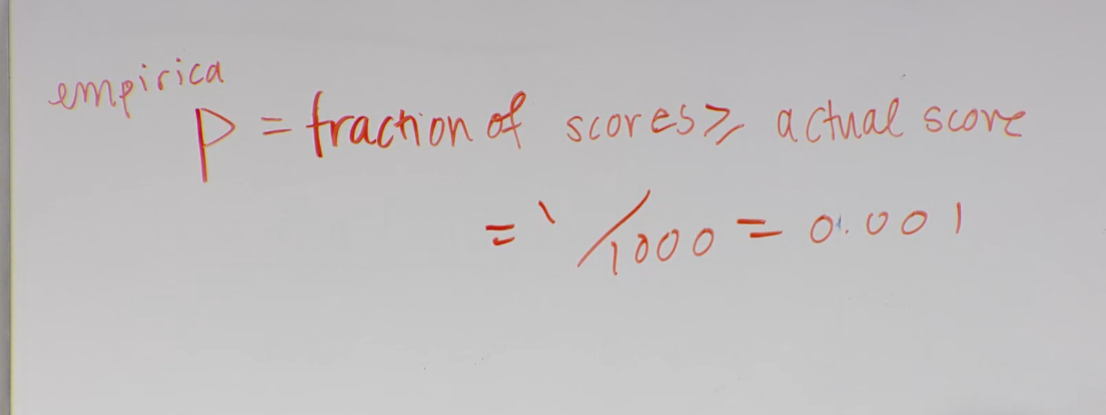 empirica
p = fraction of scores ≥ actual score
= 1/1000 = 0.001